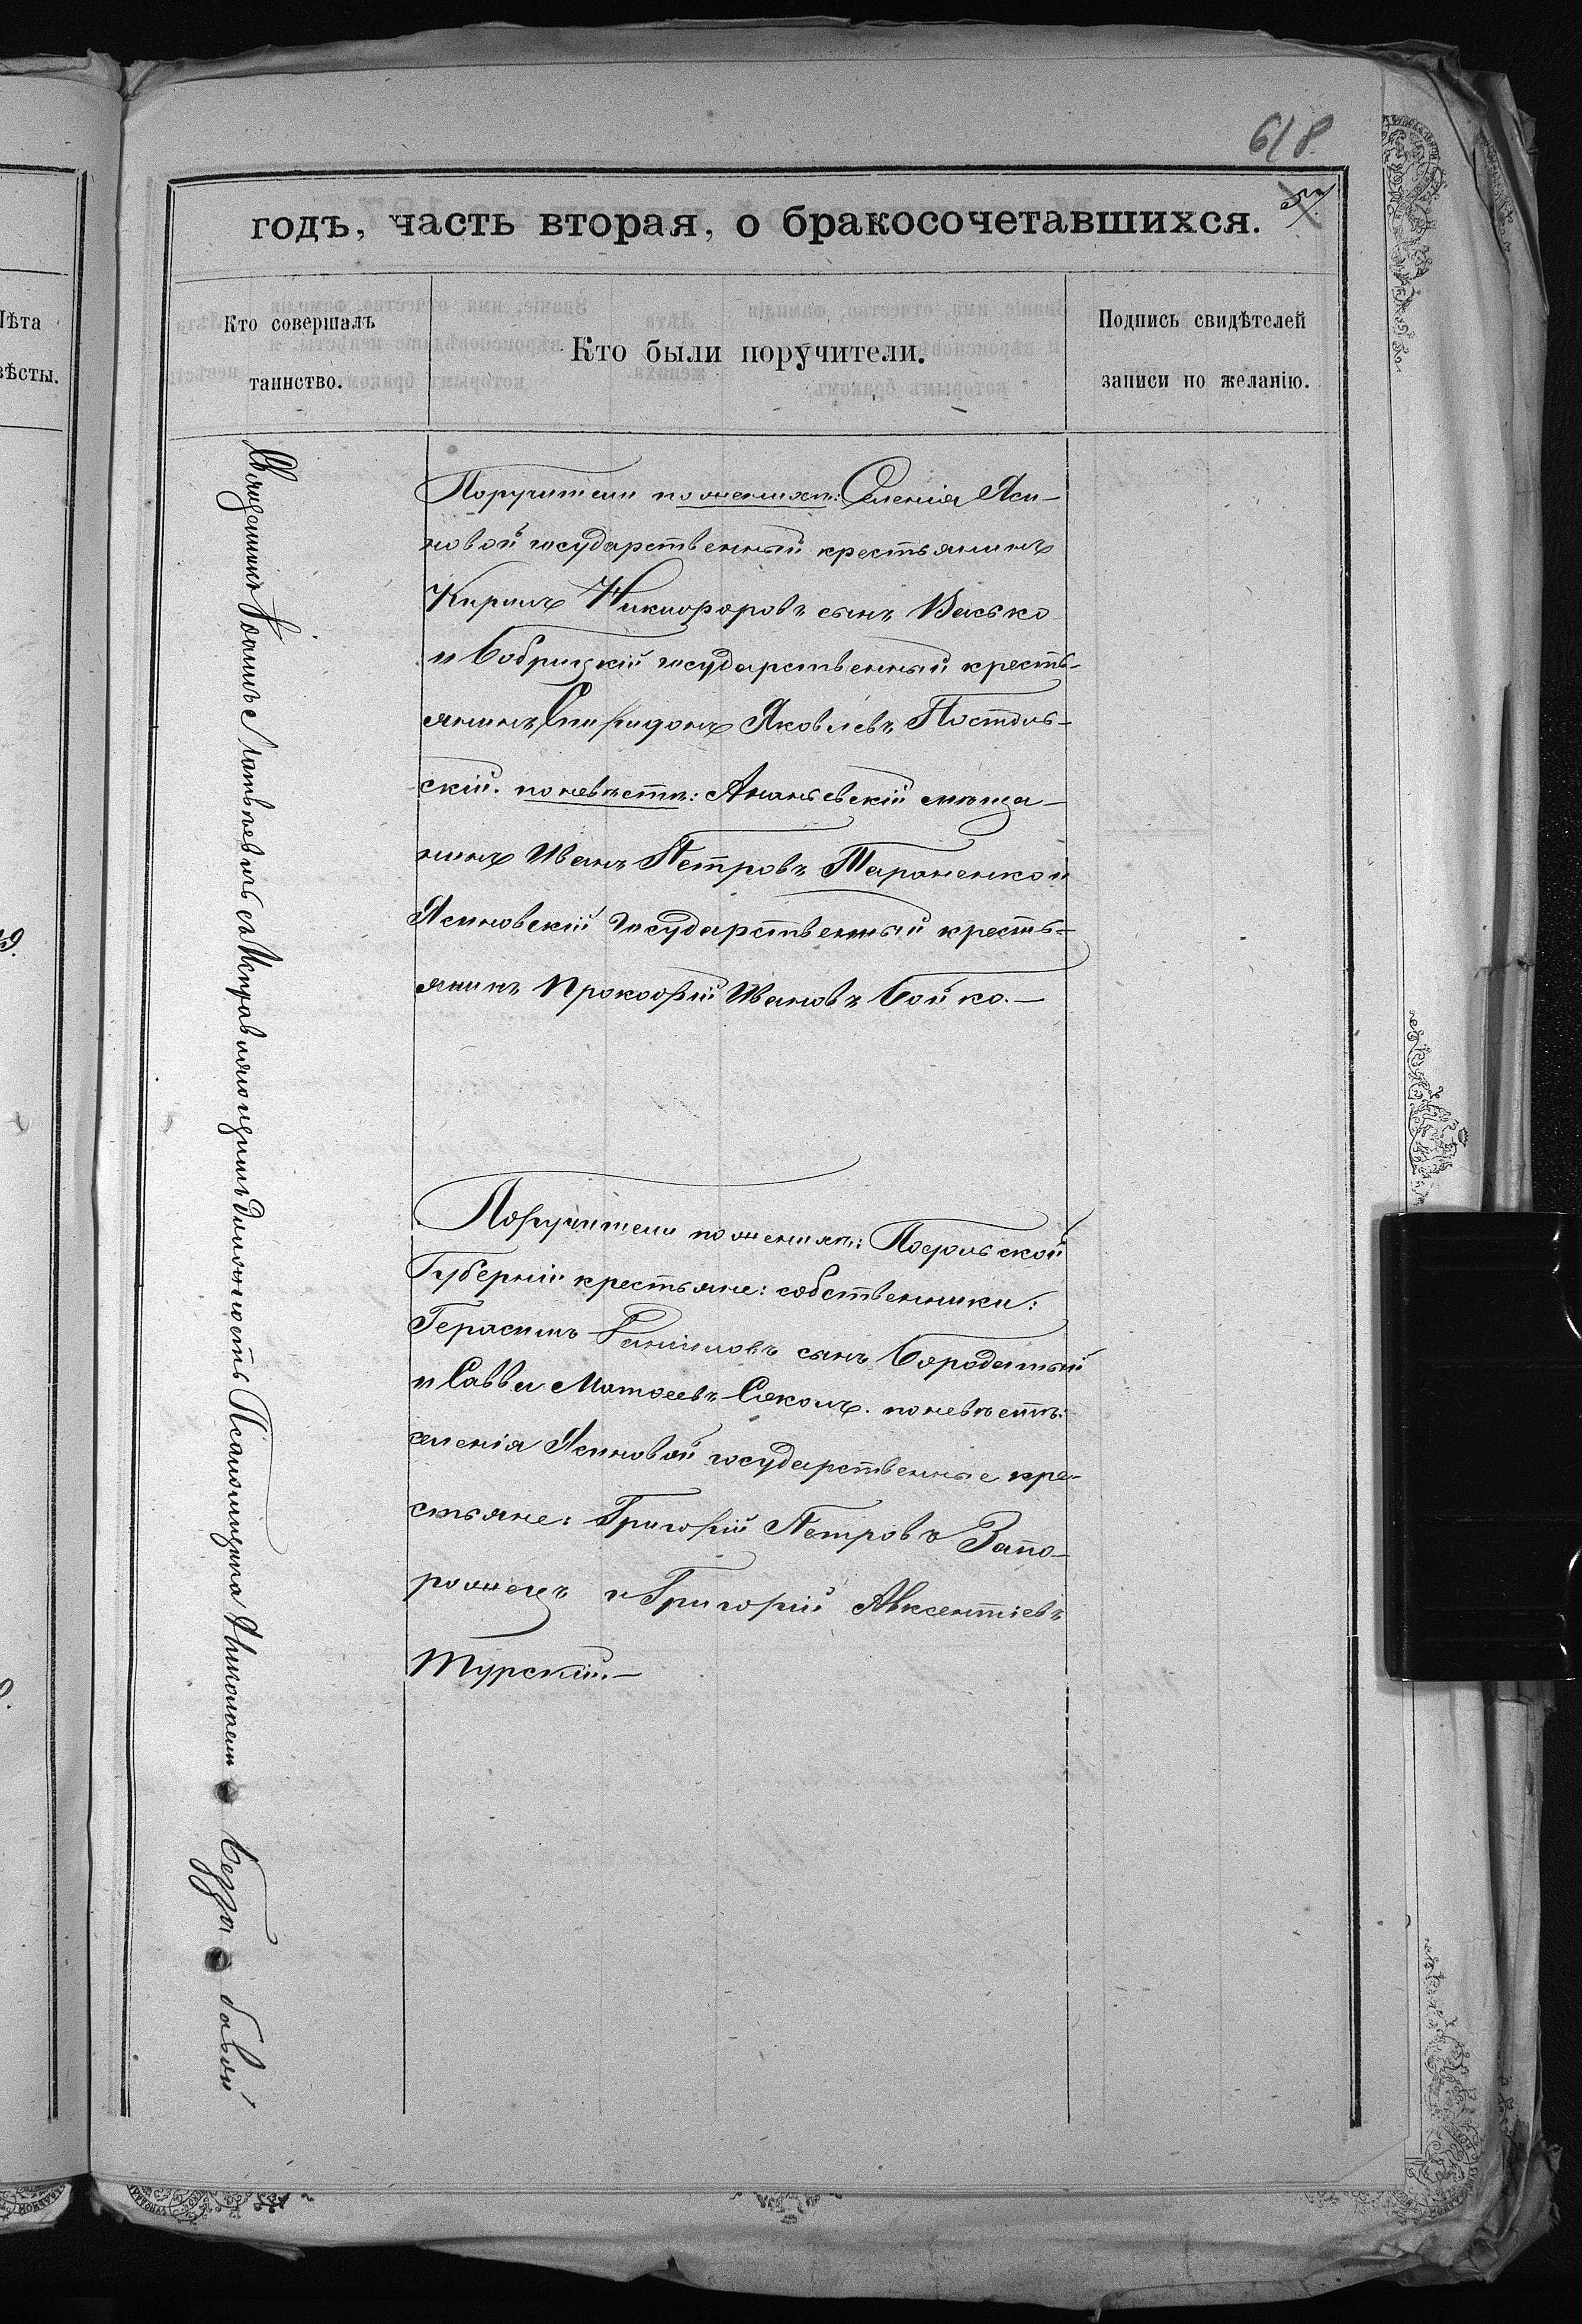 618
годъ, часть вторая, о бракосочетавшихся.
Лѣта
вѣсты.
Кто совершалъ
таинство.
Кто были поручители.
Подпись свидѣтелей
записи по желанію.
Священникъ Іоаннъ Матвѣевичъ съ Исправляющимъ должность Псаломщика Николаемъ
Поручители по женихѣ: Селенія Яси-
новой государственный крестьянинъ
Кирилъ Никифоровъ сынъ Васько
и Бобрицкій государственный кресть-
янинъ Спиридонъ Яковлевъ Постоль-
скій. по невѣстѣ: Ананьевскій мѣща-
нинъ Иванъ Петровъ Тараненко и
Ясиновскій государственный кресть-
янинъ Прокофій Ивановъ Бойко.—
Поручители по женихѣ: Подольской
Губерніи крестьяне: собственники:
Герасимъ Даниловъ сынъ Бородатый
и Савва Матѳеевъ Соколъ. по невѣстѣ:
селенія Ясиновой государственные кре-
стьяне: Григорій Петровъ Запо-
рожецъ и Григорій Авксентіевъ
Турскій.—